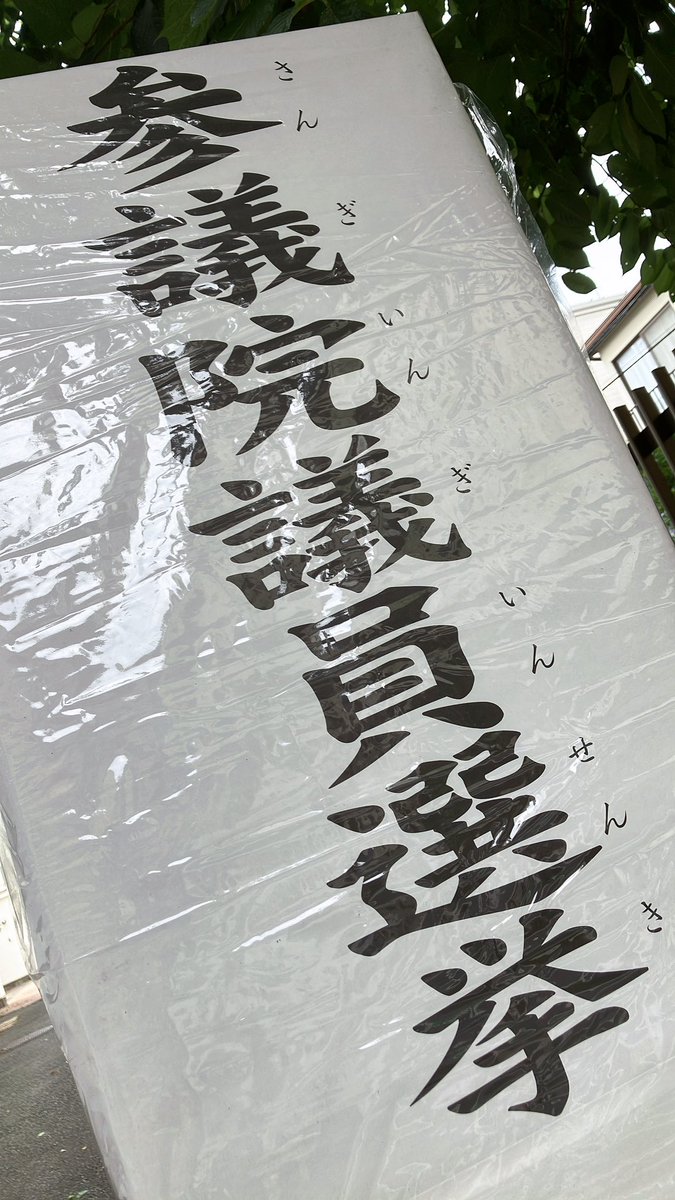 参議院議員選挙
さんぎいんぎいんせんき